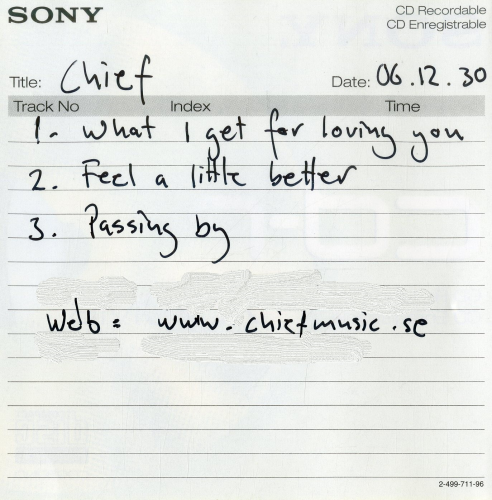 SONY
CD Recordable
CD Enregistrable
Title: Chief
Date: 06.12.30
Track No Index Time
1. What I get for loving you
2. Feel a little better
3. Passing by
Web: www.chiefmusic.se
2-499-711-96